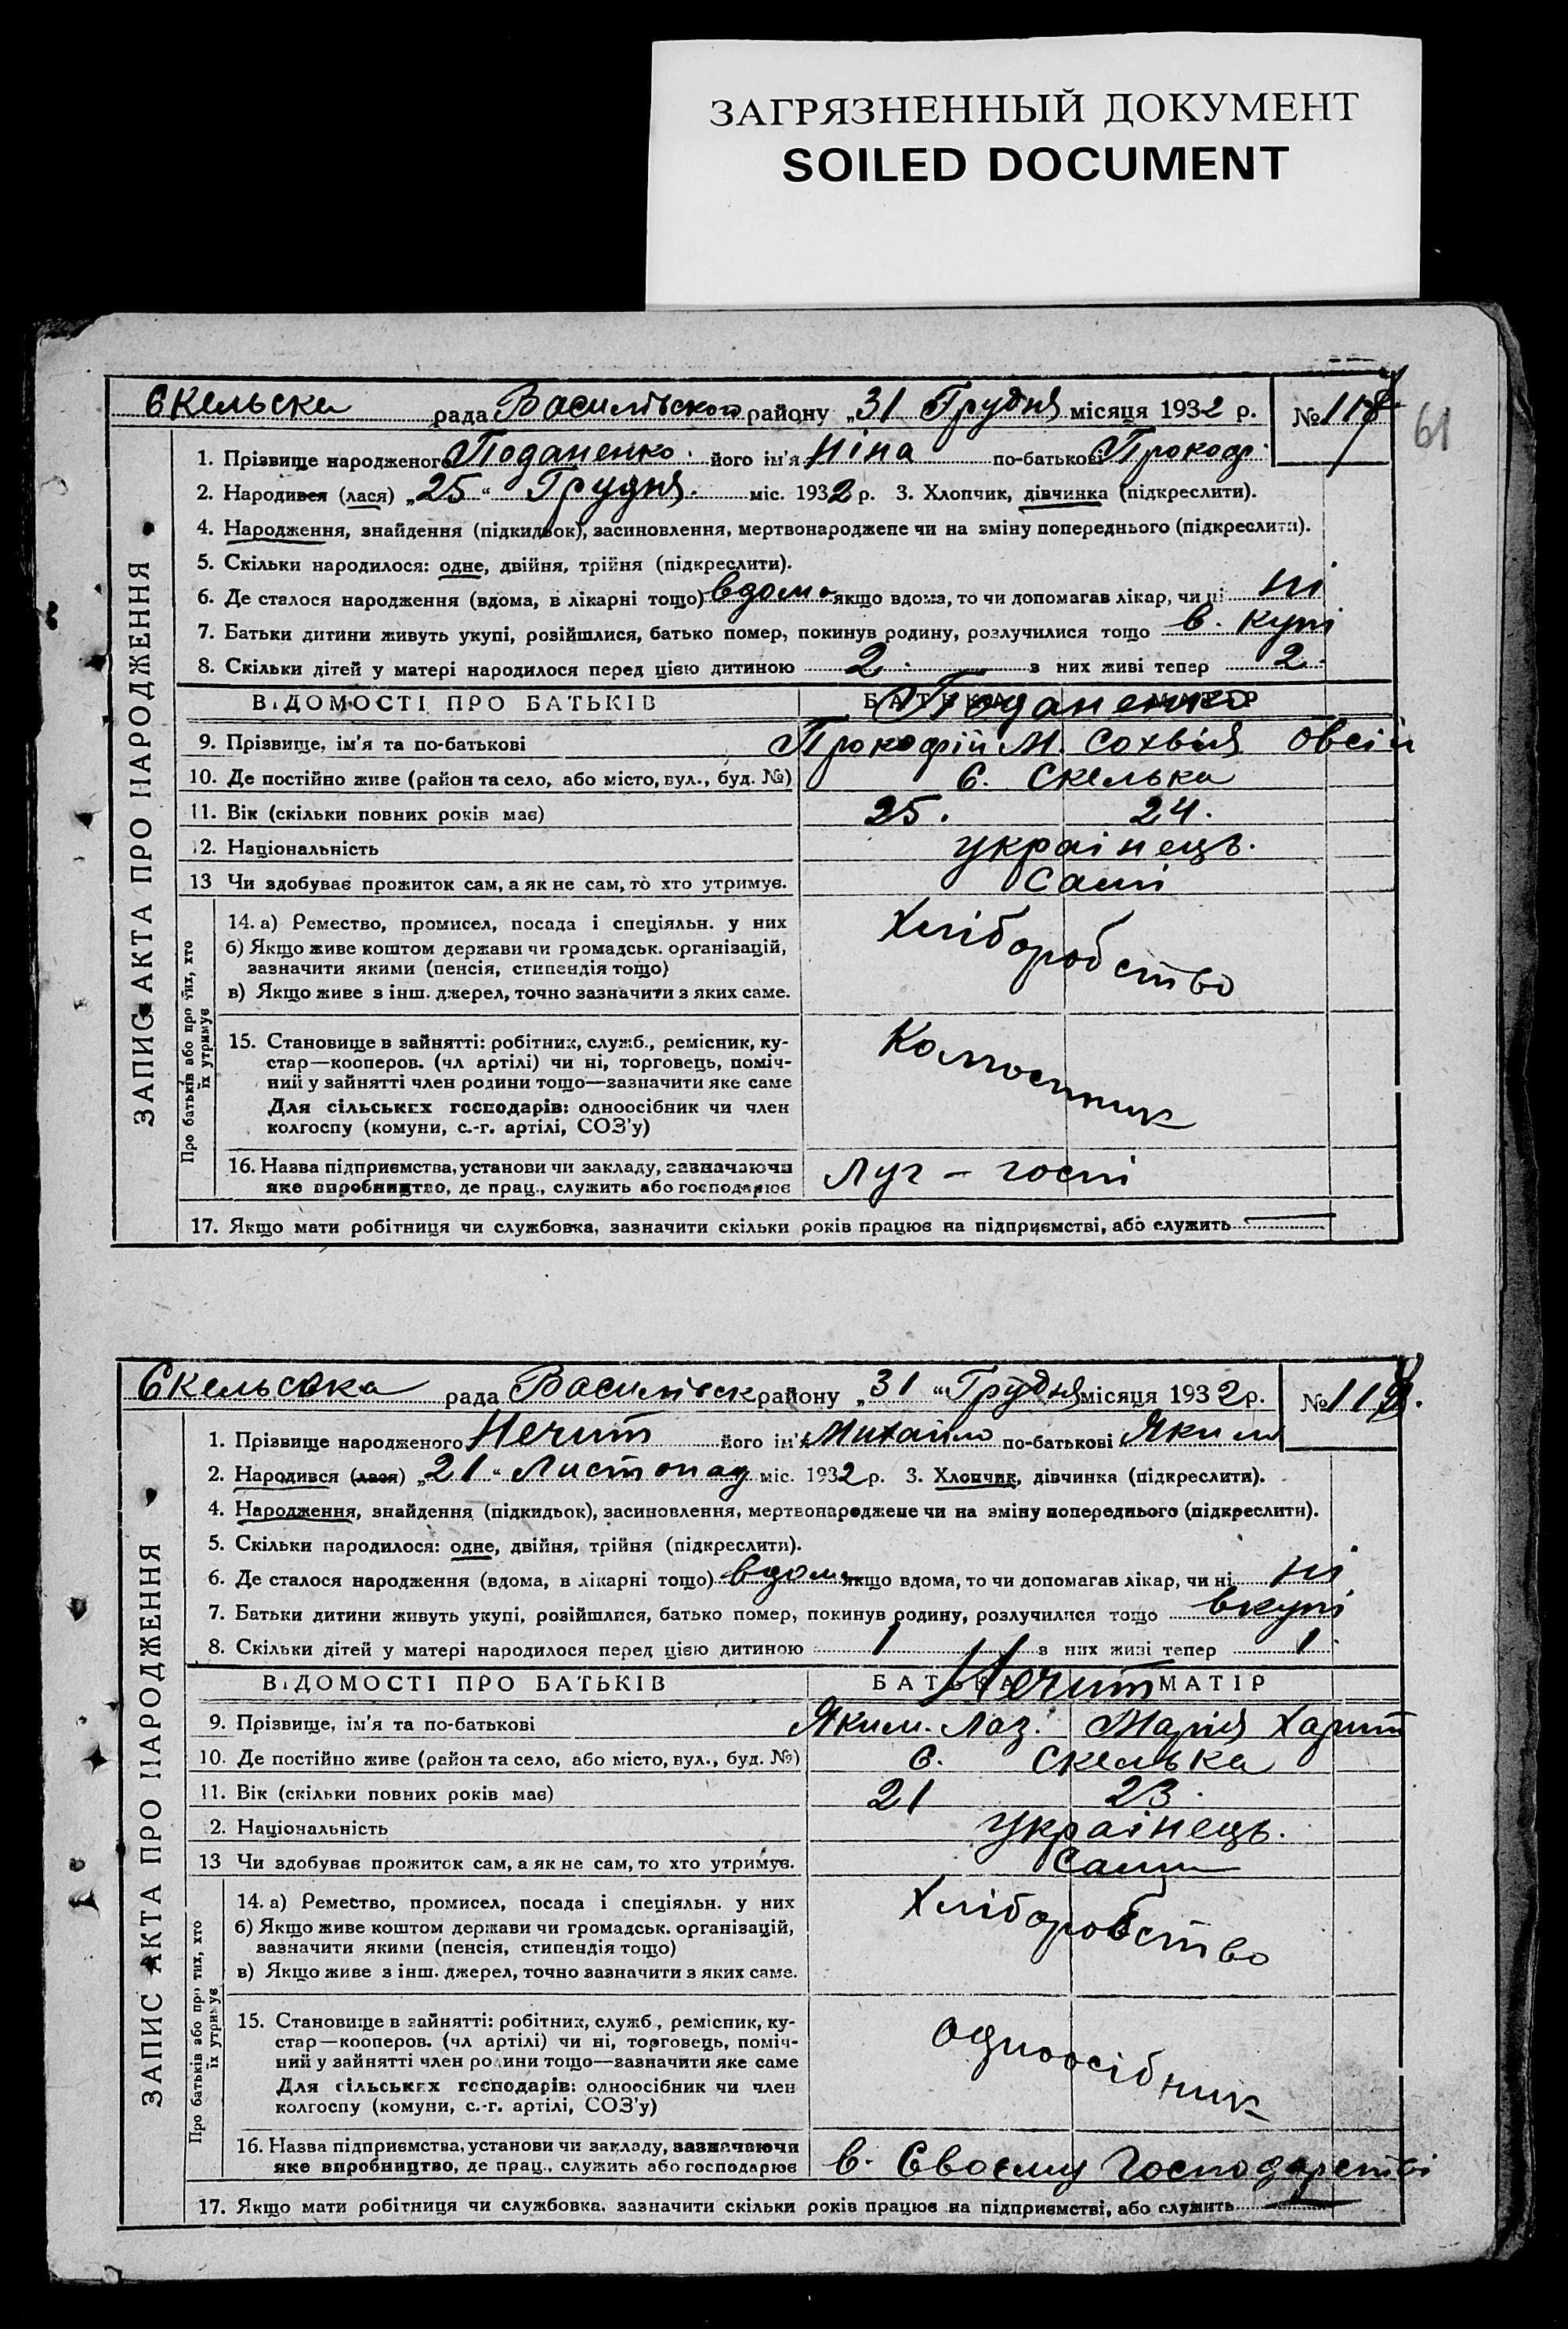 ЗАГРЯЗНЕННЫЙ ДОКУМЕНТ
SOILED DOCUMENT
61
Скельска рада Василівського району „31 Грудня місяця 1932 р. № 118
ЗАПИС АКТА ПРО НАРОДЖЕННЯ
1. Прізвище народженого Поданенко. його ім'я Ніна по-батькові Прокоф.
2. Народився (лася) „25“ Грудня. міс. 1932 р. 3. Хлопчик, дівчинка (підкреслити).
4. Народження, знайдення (підкидьок), засиновлення, мертвонароджене чи на зміну попереднього (підкреслити).
5. Скільки народилося: одне, двійня, трійня (підкреслити).
6. Де сталося народження (вдома, в лікарні тощо) вдома якщо вдома, то чи допомагав лікар, чи ні ні
7. Батьки дитини живуть укупі, розійшлися, батько помер, покинув родину, розлучилися тощо в. купі
8. Скільки дітей у матері народилося перед цією дитиною 2. з них живі тепер 2.
ВІДОМОСТІ ПРО БАТЬКІВ БАТЬКА МАТІР
Поданенко
9. Прізвище, ім'я та по-батькові Прокофій М. Сохвія Овсій
10. Де постійно живе (район та село, або місто, вул., буд. №) С. Скелька
11. Вік (скільки повних років має) 25. 24.
12. Національність українець.
13 Чи здобуває прожиток сам, а як не сам, то хто утримує. Самі
Про батьків або про тих, хто їх утримує
14. а) Ремество, промисел, посада і спеціяльн. у них
б) Якщо живе коштом держави чи громадськ. організацій,
зазначити якими (пенсія, стипендія тощо)
в) Якщо живе з інш. джерел, точно зазначити з яких саме.
Хліборобство
15. Становище в зайнятті: робітник, служб., ремісник, ку-
стар—кооперов. (чл артілі) чи ні, торговець, поміч-
ний у зайнятті член родини тощо—зазначити яке саме
Для сільських господарів: одноосібник чи член
колгоспу (комуни, с.-г. артілі, СОЗ'у)
16. Назва підприємства, установи чи закладу, зазначаючи
яке виробництво, де прац., служить або господарює
17. Якщо мати робітниця чи службовка, зазначити скільки років працює на підприємстві, або служить
Скельська рада Василівськ району „31“ Грудня місяця 1932 р. № 119.
ЗАПИС АКТА ПРО НАРОДЖЕННЯ
1. Прізвище народженого Нечит його ім'я Михайло по-батькові Яким
2. Народився (лася) „21“ Листопад міс. 1932 р. 3. Хлопчик, дівчинка (підкреслити).
4. Народження, знайдення (підкидьок), засиновлення, мертвонароджене чи на зміну попереднього (підкреслити).
5. Скільки народилося: одне, двійня, трійня (підкреслити).
6. Де сталося народження (вдома, в лікарні тощо) вдома якщо вдома, то чи допомагав лікар, чи ні ні
7. Батьки дитини живуть укупі, розійшлися, батько помер, покинув родину, розлучилися тощо вкупі
8. Скільки дітей у матері народилося перед цією дитиною 1 з них живі тепер 1.
ВІДОМОСТІ ПРО БАТЬКІВ БАТЬКА МАТІР
Нечит
9. Прізвище, ім'я та по-батькові Яким. Лаз. Марія Харит
10. Де постійно живе (район та село, або місто, вул., буд. №) С. Скелька
11. Вік (скільки повних років має) 21 23.
2. Національність українець.
13 Чи здобуває прожиток сам, а як не сам, то хто утримує. Сами
Про батьків або про тих, хто їх утримує
14. а) Ремество, промисел, посада і спеціяльн. у них
б) Якщо живе коштом держави чи громадськ. організацій,
зазначити якими (пенсія, стипендія тощо)
в) Якщо живе з інш. джерел, точно зазначити з яких саме.
Хліборобство
15. Становище в зайнятті: робітник, служб., ремісник, ку-
стар—кооперов. (чл артілі) чи ні, торговець, поміч-
ний у зайнятті член родини тощо—зазначити яке саме
Для сільських господарів: одноосібник чи член
колгоспу (комуни, с.-г. артілі, СОЗ'у)
одноосібник
16. Назва підприємства, установи чи закладу, зазначаючи
яке виробництво, де прац., служить або господарює
в. Своєму Господарстві
17. Якщо мати робітниця чи службовка, зазначити скільки років працює на підприємстві, або служить